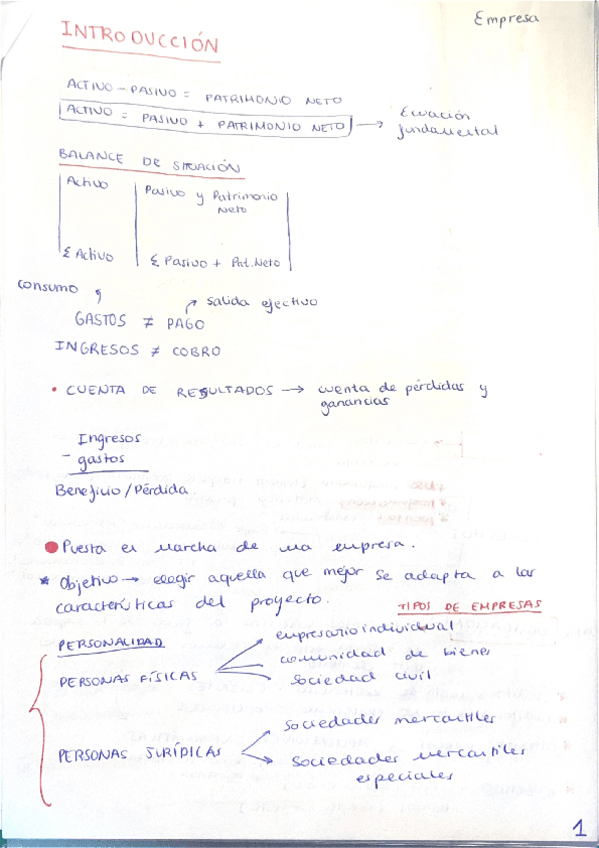 Empresa
INTRODUCCIÓN
ACTIVO - PASIVO = PATRIMONIO NETO
ACTIVO = PASIVO + PATRIMONIO NETO → Ecuación
fundamental
BALANCE DE SITUACIÓN
Activo
Pasivo y Patrimonio
Neto
Σ Activo
Σ Pasivo + Pat. Neto
Consumo
salida efectivo
GASTOS ≠ PAGO
INGRESOS ≠ COBRO
• CUENTA DE RESULTADOS → cuenta de pérdidas y
ganancias
Ingresos
- gastos
Beneficio / Pérdida
● Puesta en marcha de una empresa.
* Objetivo → elegir aquella que mejor se adapta a las
características del proyecto.
TIPOS DE EMPRESAS
PERSONALIDAD
empresario individual
comunidad de bienes
PERSONAS FÍSICAS
Sociedad civil
Sociedades mercantiles
PERSONAS JURÍDICAS
Sociedades mercantiles
especiales
1